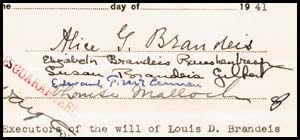 the day of 1941
Alice G. Brandeis
Elizabeth Brandeis Raushenbush
Susan Brandeis Gilbert
Edward F. McClennen
Louise Malloch
Executors of the will of Louis D. Brandeis